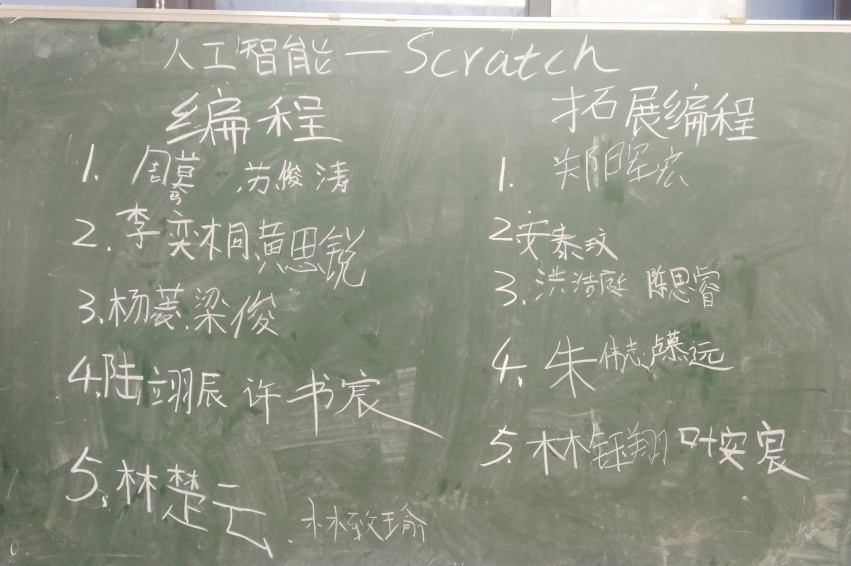 人工智能—Scratch
编程
1. 周 苏俊涛
2. 李奕桐 黄思锐
3. 杨菱 梁俊
4. 陆翊辰 许书宸
5. 林楚云 林致瑜
拓展编程
1. 郑阳军宏
2 安泰玟
3. 洪浩庭 陈思睿
4. 朱伟志 卢慕远
5. 林钰翔 叶安宸